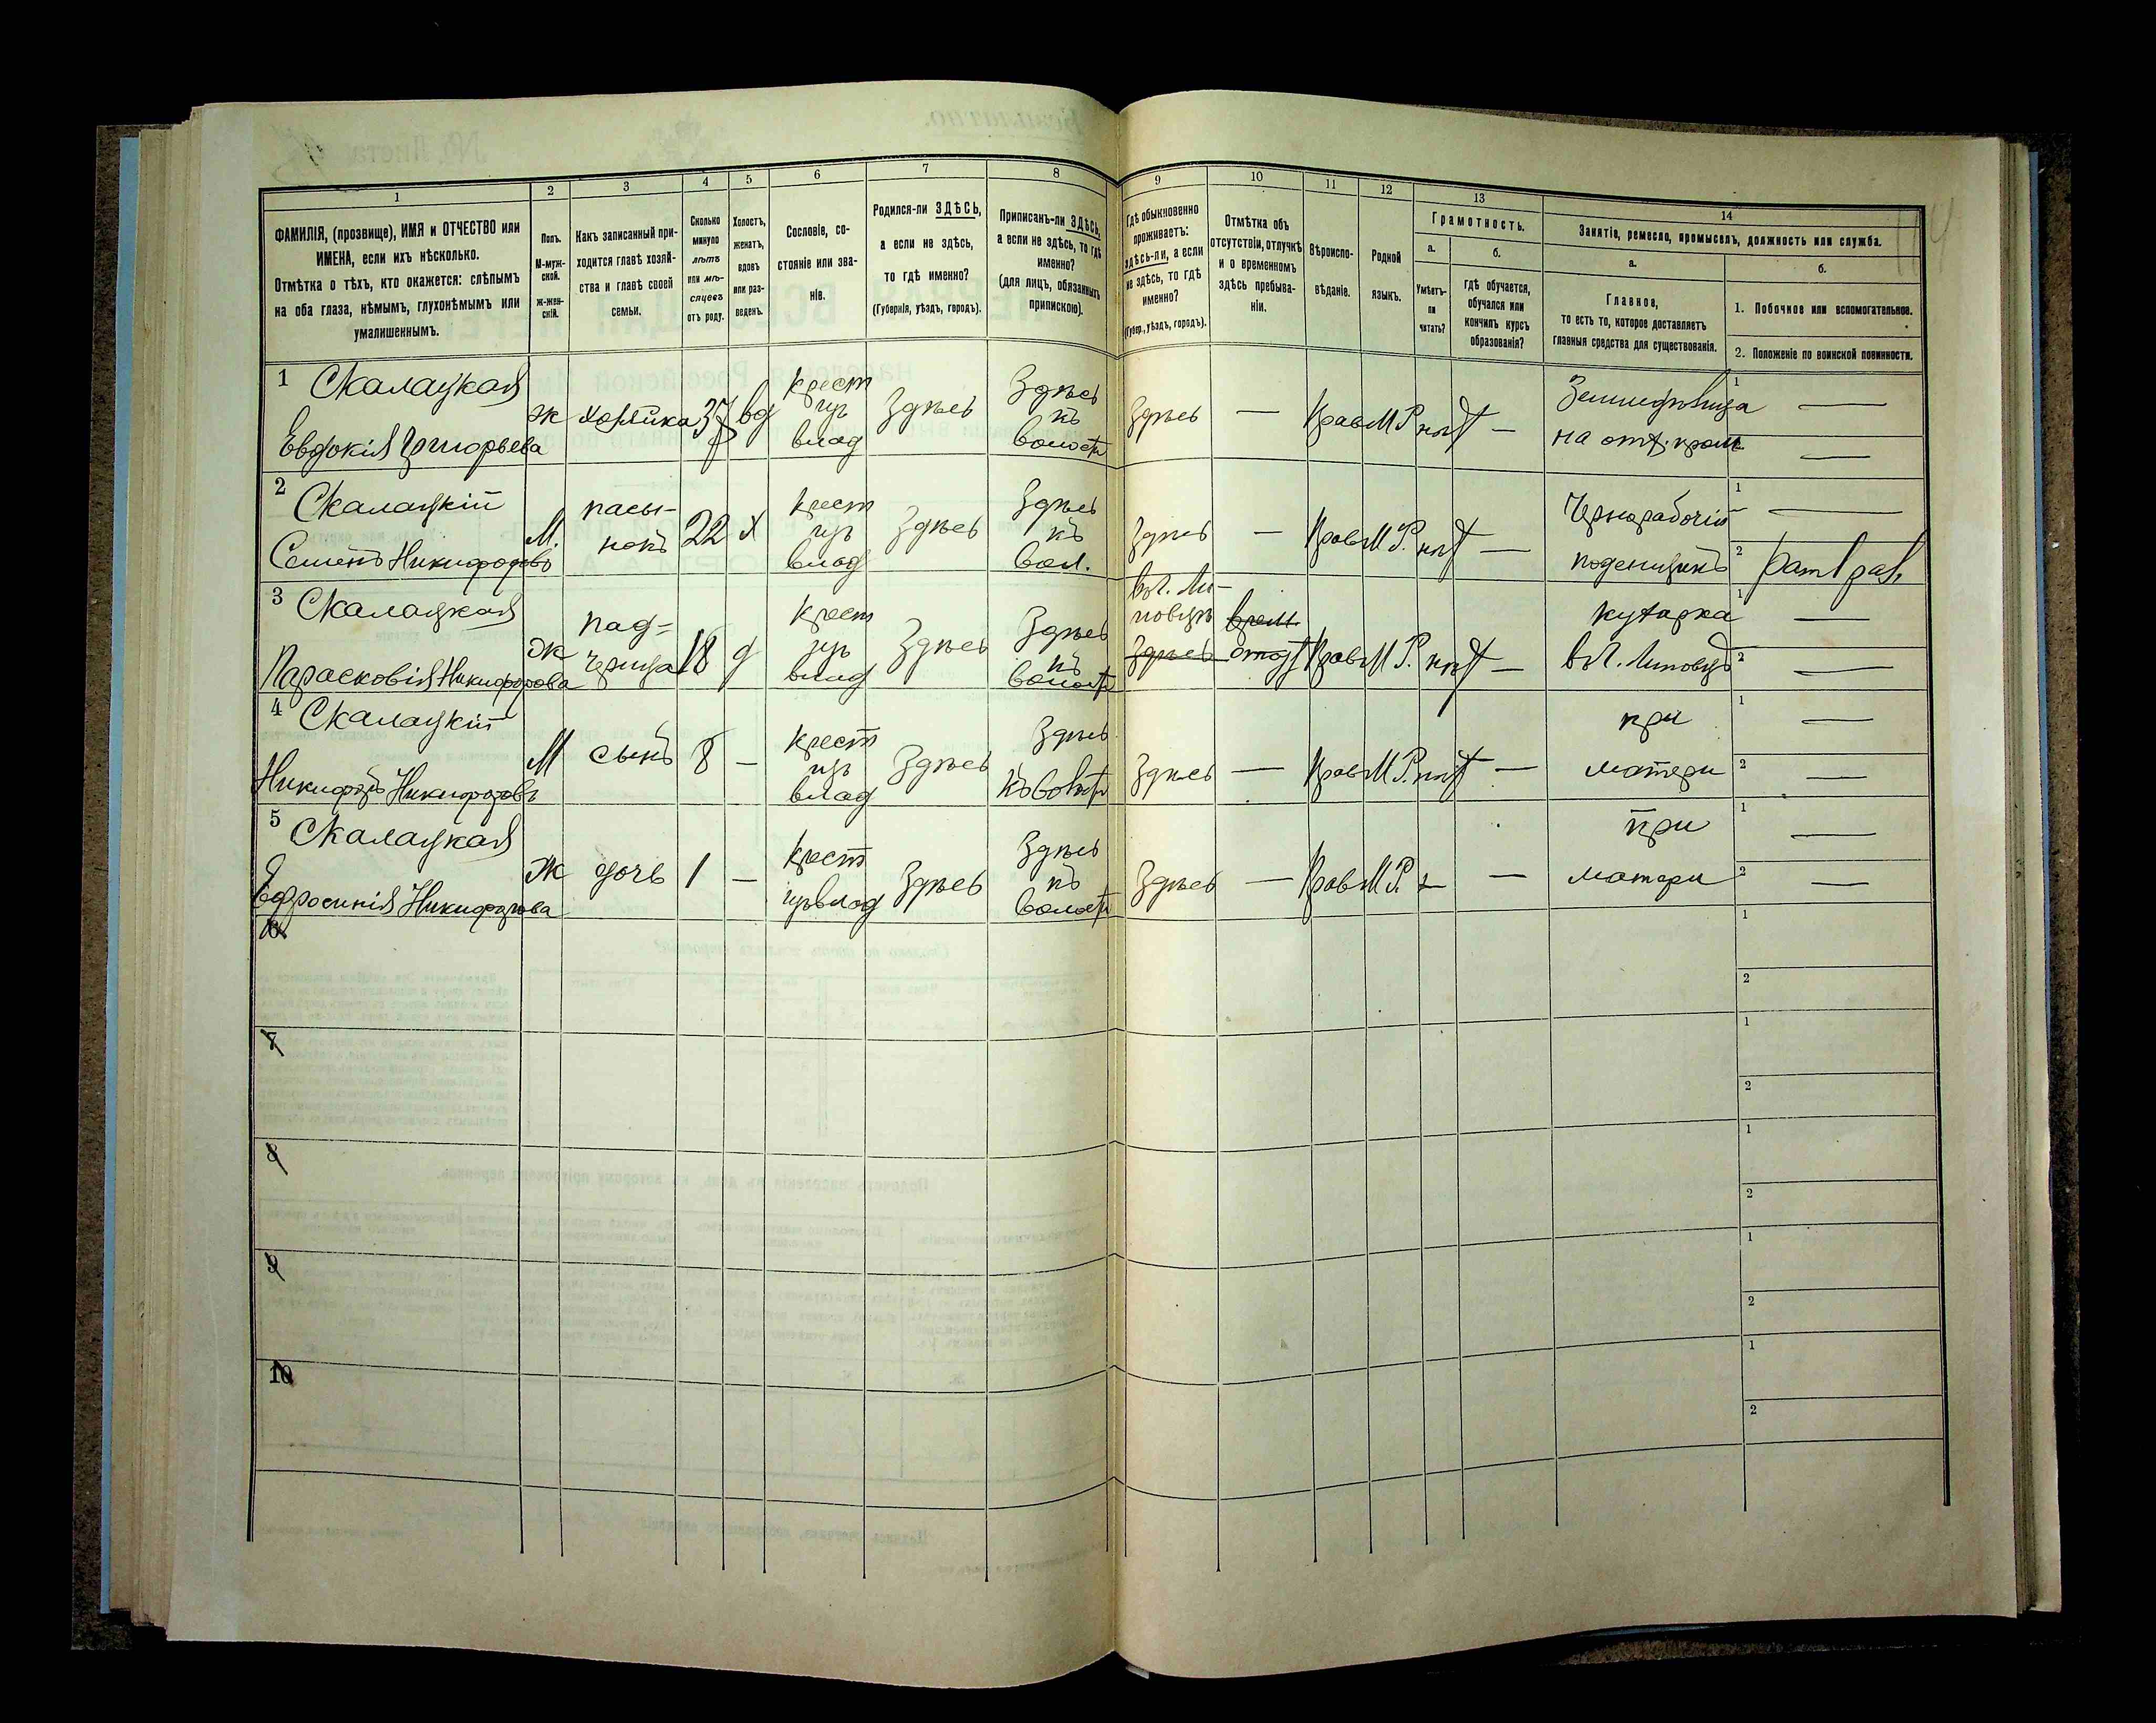 1 2 3 4 5 6 7 8 9 10 11 12 13 14
ФАМИЛІЯ, (прозвище), ИМЯ и ОТЧЕСТВО или
ИМЕНА, если ихъ нѣсколько.
Отмѣтка о тѣхъ, кто окажется: слѣпымъ
на оба глаза, нѣмымъ, глухонѣмымъ или
умалишеннымъ.
Полъ.
М-муж-
ской.
Ж-жен-
скій.
Какъ записанный при-
ходится главѣ хозяй-
ства и главѣ своей
семьи.
Сколько
минуло
лѣтъ
или мѣ-
сяцевъ
отъ роду.
Холостъ,
женатъ,
вдовъ
или раз-
веденъ.
Сословіе, со-
стояніе или зва-
ніе.
Родился-ли ЗДѢСЬ,
а если не здѣсь,
то гдѣ именно?
(Губернія, уѣздъ, городъ).
Приписанъ-ли ЗДѢСЬ,
а если не здѣсь, то гдѣ
именно?
(для лицъ, обязанныхъ
припискою).
Гдѣ обыкновенно
проживаетъ:
здѣсь-ли, а если
не здѣсь, то гдѣ
именно?
(Губер., уѣздъ, городъ).
Отмѣтка объ
отсутствіи, отлучкѣ
и о временномъ
здѣсь пребыва-
ніи.
Вѣроиспо-
вѣданіе.
Родной
языкъ.
Грамотность.
а.
Умѣетъ-
ли
читать?
б.
гдѣ обучается,
обучался или
кончилъ курсъ
образованія?
Занятіе, ремесло, промыселъ, должность или служба.
а.
Главное,
то есть то, которое доставляетъ
главныя средства для существованія.
б.
1. Побочное или вспомогательное.
2. Положеніе по воинской повинности.
1 Скалацкая
Евдокія Григорьева
ж
хозяйка
37
вд
крест
изъ
влад
Здѣсь
Здѣсь
къ
волости
Здѣсь
—
Прав
М Р.
нѣт
—
Земледѣлица
на отд.
1 —
—
2 Скалацкій
Семенъ Никифоровъ
М.
пасы-
нокъ
22
х
крест
изъ
влад
Здѣсь
Здѣсь
къ
вол.
Здѣсь
—
Прав
М Р.
нѣт
—
Чернорабочій
поденщикъ
1 —
2 рат 1 раз.
3 Скалацкая
Парасковія Никифорова
Ж
пад-
черица
18
д
крест
изъ
влад
Здѣсь
Здѣсь
къ
волости
в М. Ли-
повцѣ
Здѣсь
врем.
отсут
Прав
М Р.
нѣт
—
кухарка
в М. Липовцѣ
1 —
2 —
4 Скалацкій
Никифоръ Никифоровъ
М
сынъ
8
—
крест
изъ
влад
Здѣсь
Здѣсь
къ волости
Здѣсь
—
Прав
М Р.
нѣт
—
при
матери
1 —
2 —
5 Скалацкая
Ефросинія Никифорова
Ж
дочь
1
—
крест
изъ влад
Здѣсь
Здѣсь
къ
волости
Здѣсь
—
Прав
М Р.
—
—
при
матери
1 —
2 —
6
1
2
7
1
2
8
1
2
9
1
2
10
1
2